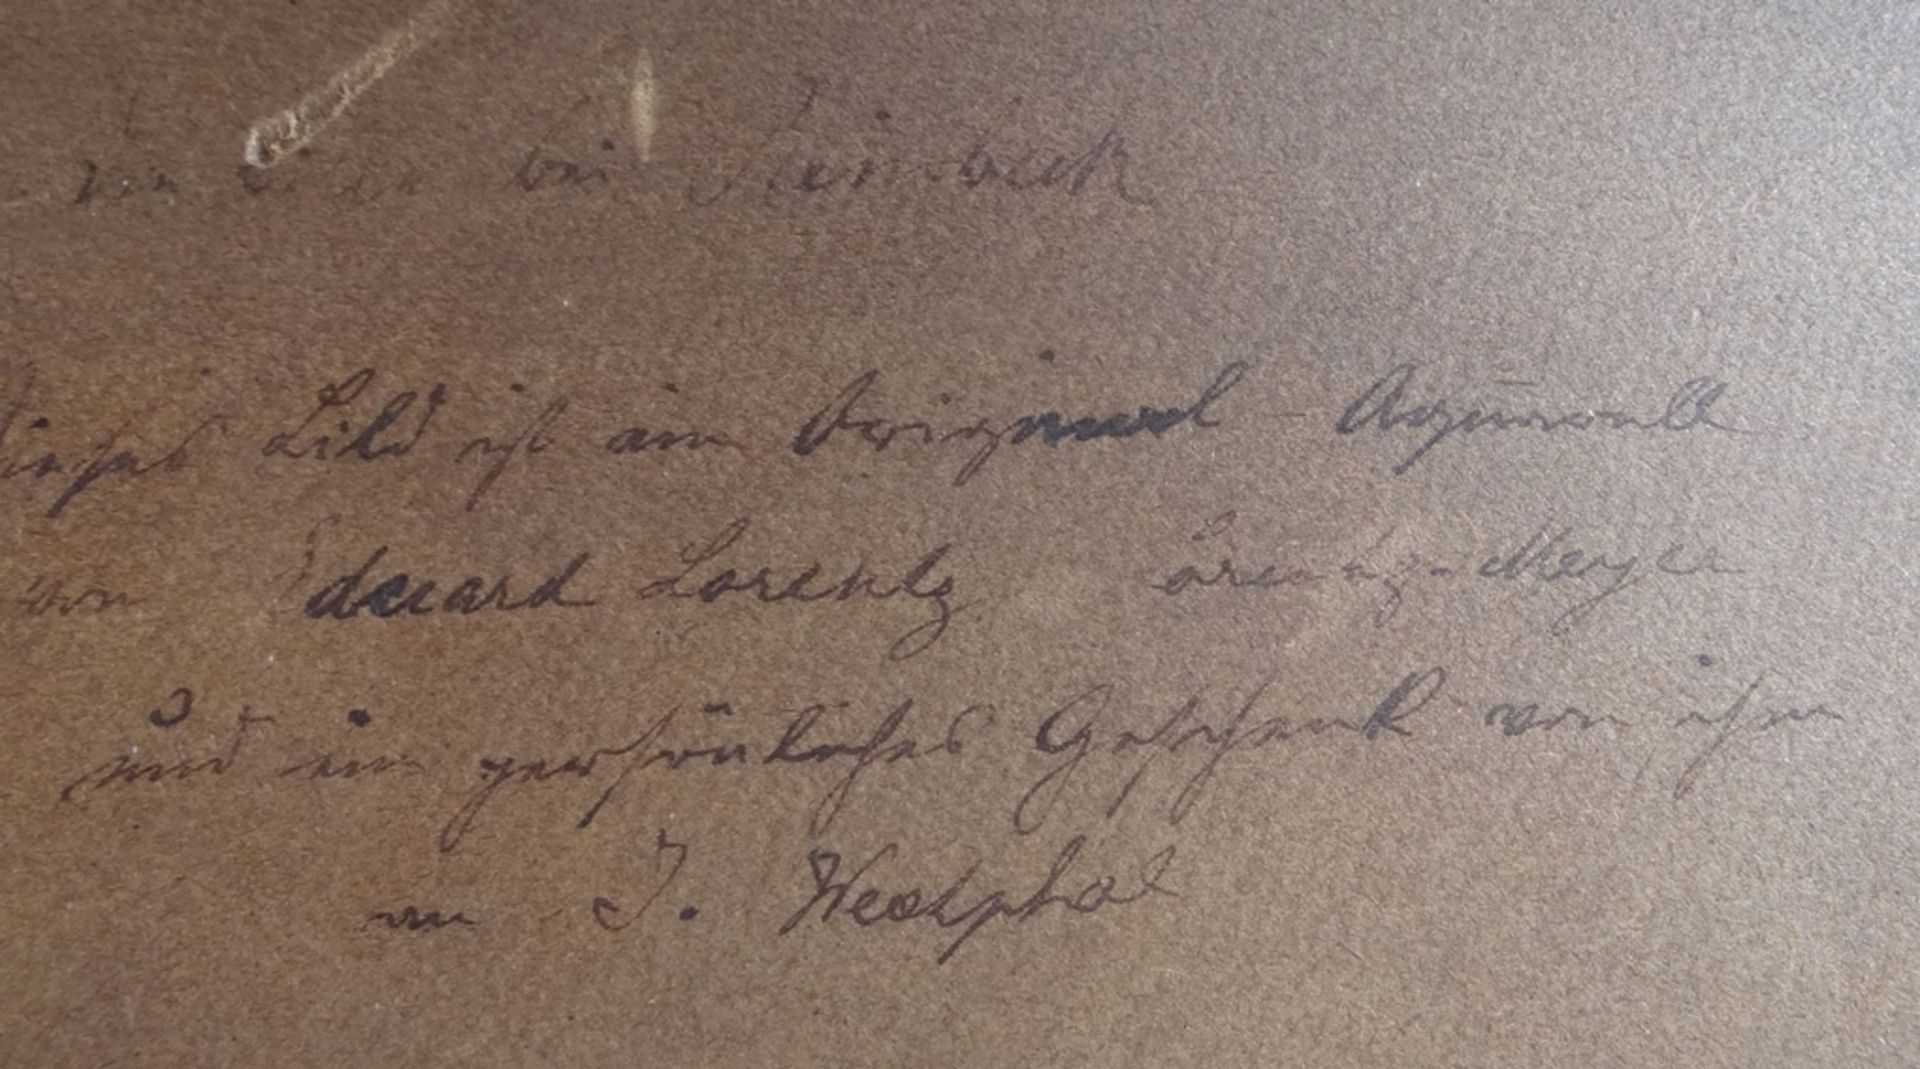 bei Reinbek
Dieses Bild ist ein Original - Aquarell
von Eduard Lorentz Lorentz-Meyer
und ein persönliches Geschenk von ihm
an J. Westphal